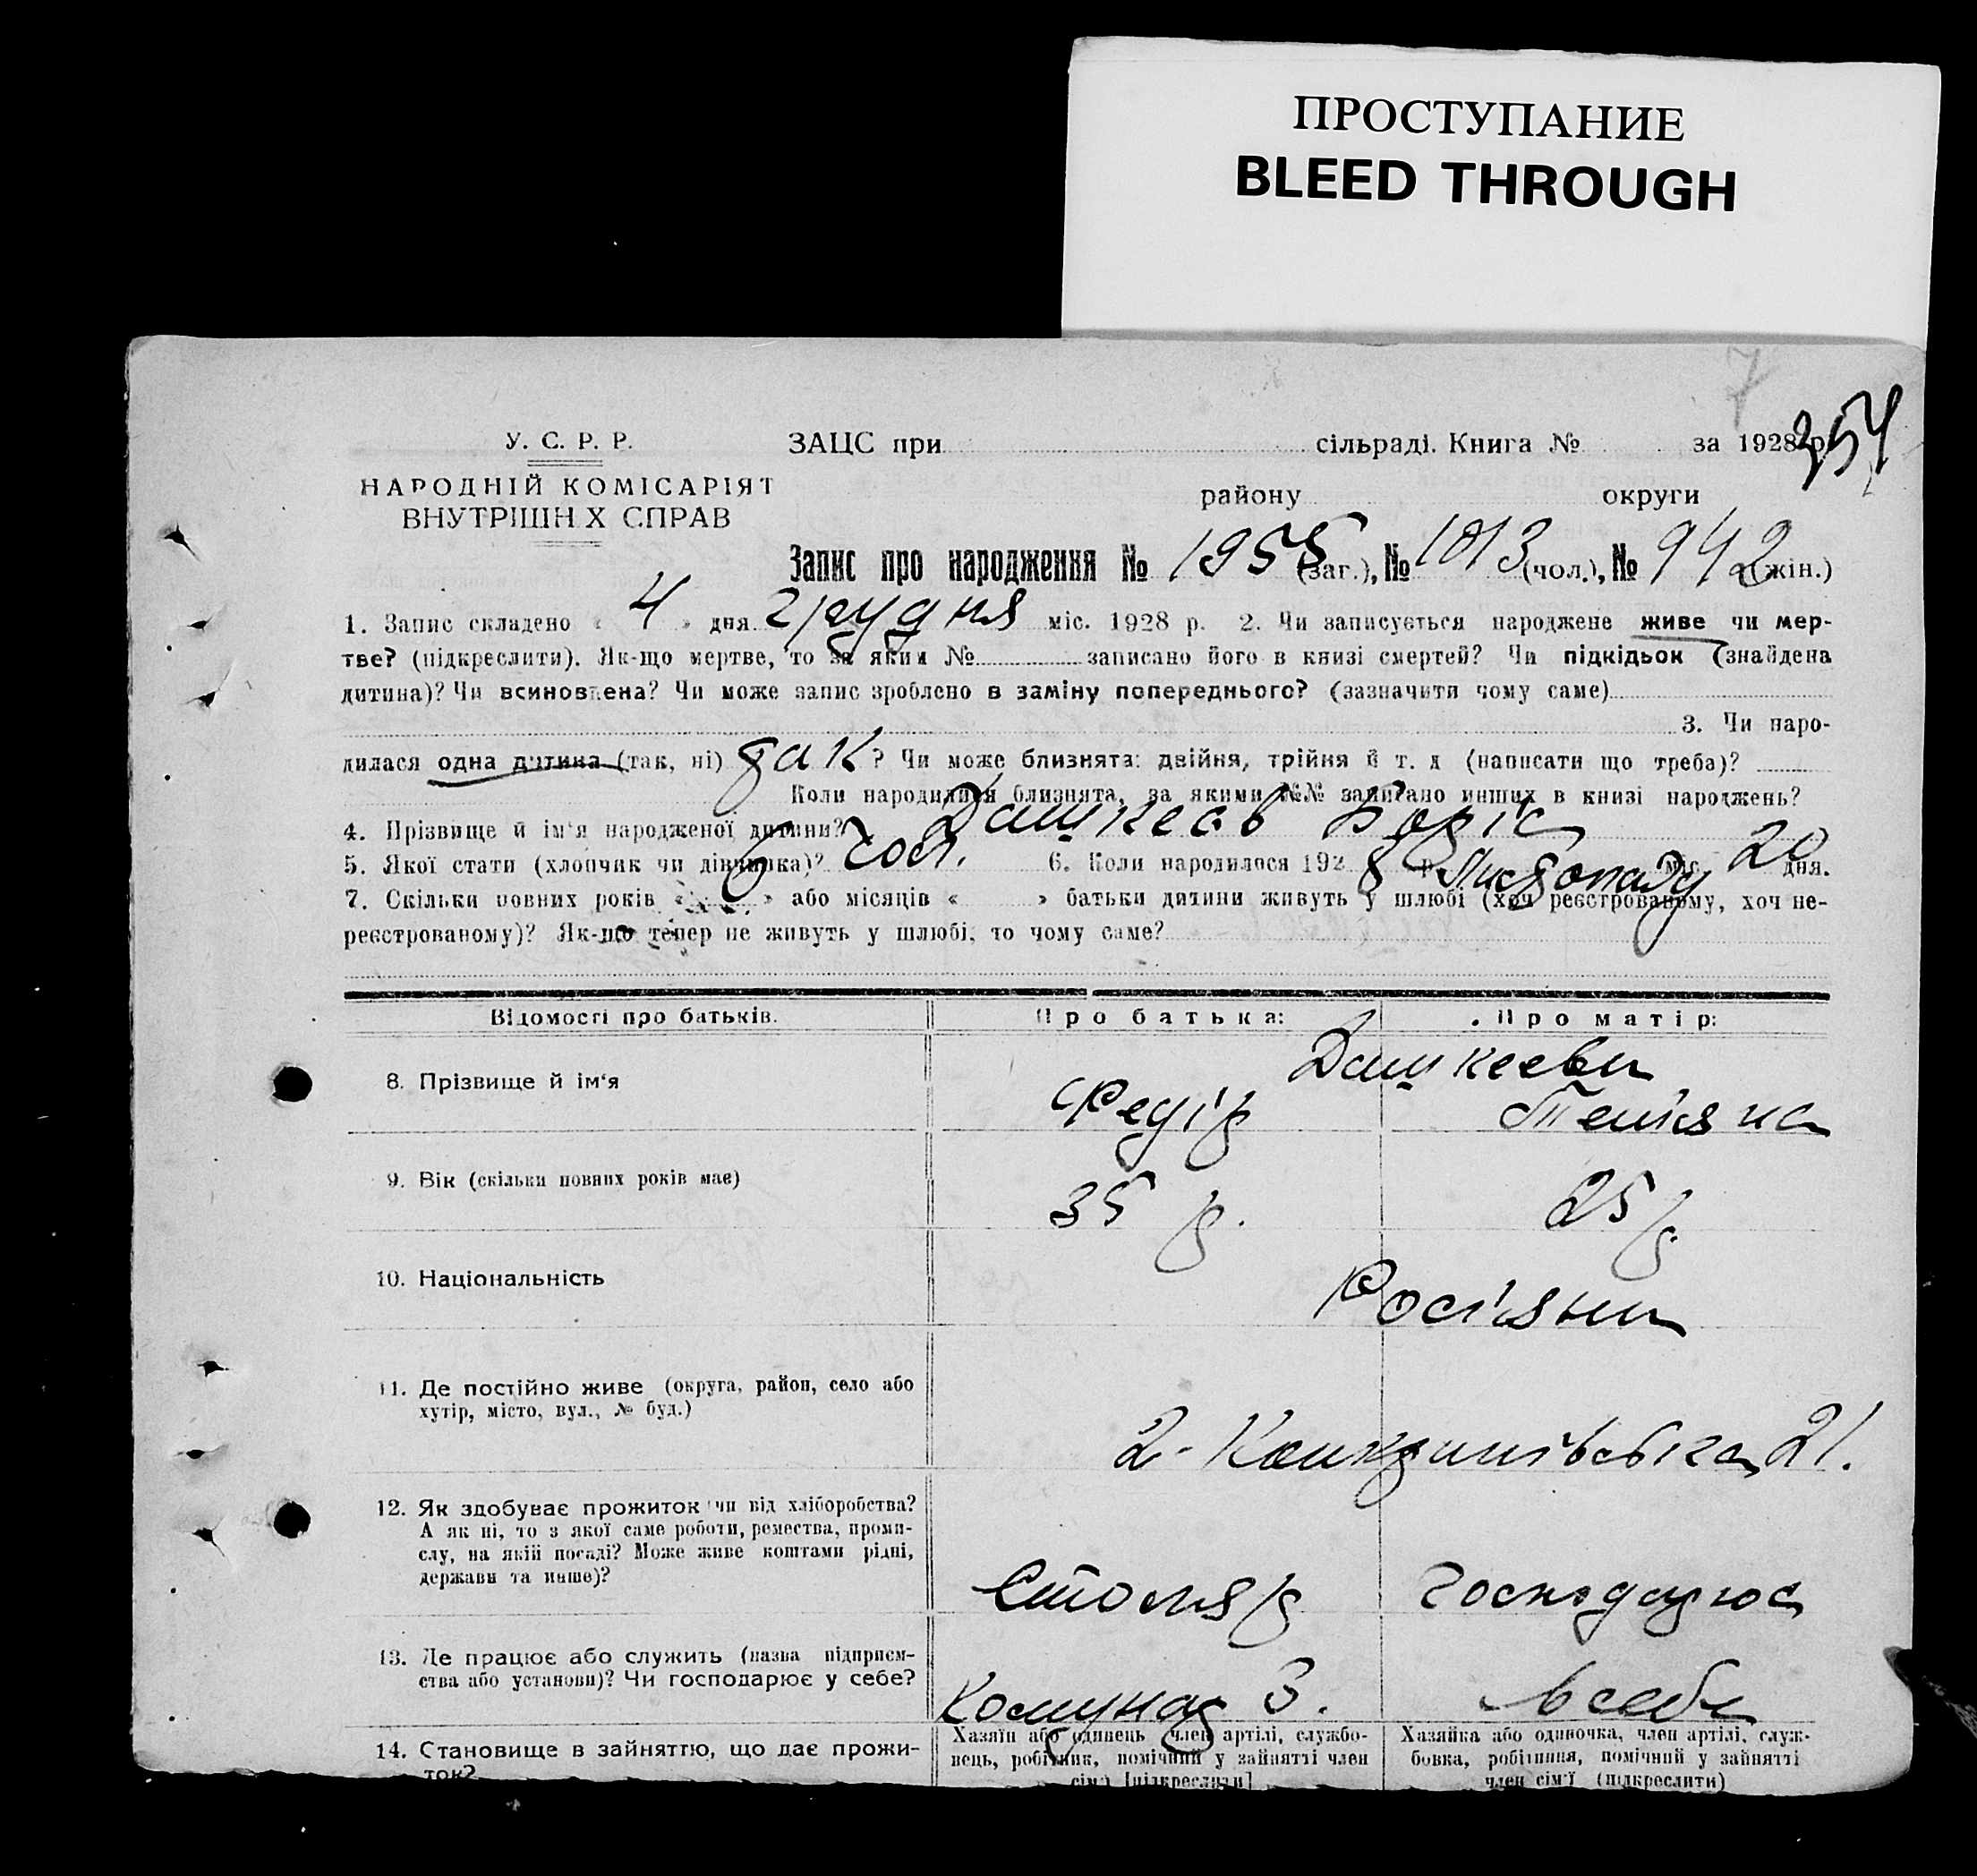 ПРОСТУПАНИЕ
BLEED THROUGH
7
354
У. С. Р. Р.
ЗАЦС при сільраді. Книга № за 1928 р.
НАРОДНІЙ КОМІСАРІЯТ
ВНУТРІШН Х СПРАВ
району округи
Запис про народження № 1955 (заг.), № 1013 (чол.), № 942 (жін.)
1. Запис складено « 4 » дня грудня міс. 1928 р. 2. Чи записується народжене живе чи мер-
тве? (підкреслити). Як-що мертве, то за яким № записано його в книзі смертей? Чи підкідьок (знайдена
дитина)? Чи всиновлена? Чи може запис зроблено в заміну попереднього? (зазначити чому саме)
3. Чи наро-
дилася одна дитина (так, ні) так ? Чи може близнята: двійня, трійня й т. д (написати що треба)?
Коли народилися близнята, за якими №№ записано инших в книзі народжень?
4. Прізвище й ім'я народженої дитини? Дашкеєв Боріс
5. Якої стати (хлопчик чи дівчинка)? чол. 6. Коли народилося 1928 р. Листопаду міс. 20 дня.
7. Скільки повних років « » або місяців « » батьки дитини живуть у шлюбі (хоч реєстрованому, хоч не-
реєстрованому)? Як-що тепер не живуть у шлюбі, то чому саме?
Відомості про батьків. Про батька: Про матір:
Дашкеєви
8. Прізвище й ім'я Федір Тетяна
9. Вік (скільки повних років має) 35 р. 25 р.
10. Національність Росіяни
11. Де постійно живе (округа, район, село або
хутір, місто, вул., № буд.)
2- 21.
12. Як здобуває прожиток чи від хліборобства?
А як ні, то з якої саме роботи, ремества, проми-
слу, на якій посаді? Може живе коштами рідні,
держави та инше)?
Столяр Господарює
13. Де працює або служить (назва підприєм-
ства або установи)? Чи господарює у себе?
Комунар З. в себе
14. Становище в зайняттю, що дає прожи-
ток?
Хазяїн або одинець член артілі, службо-
вець, робітник, помічний у зайнятті член
сім'ї [підкреслити]
Хазяйка або одиночка, член артілі, служ-
бовка, робітниця, помічний у зайнятті
член сім'ї (підкреслити)